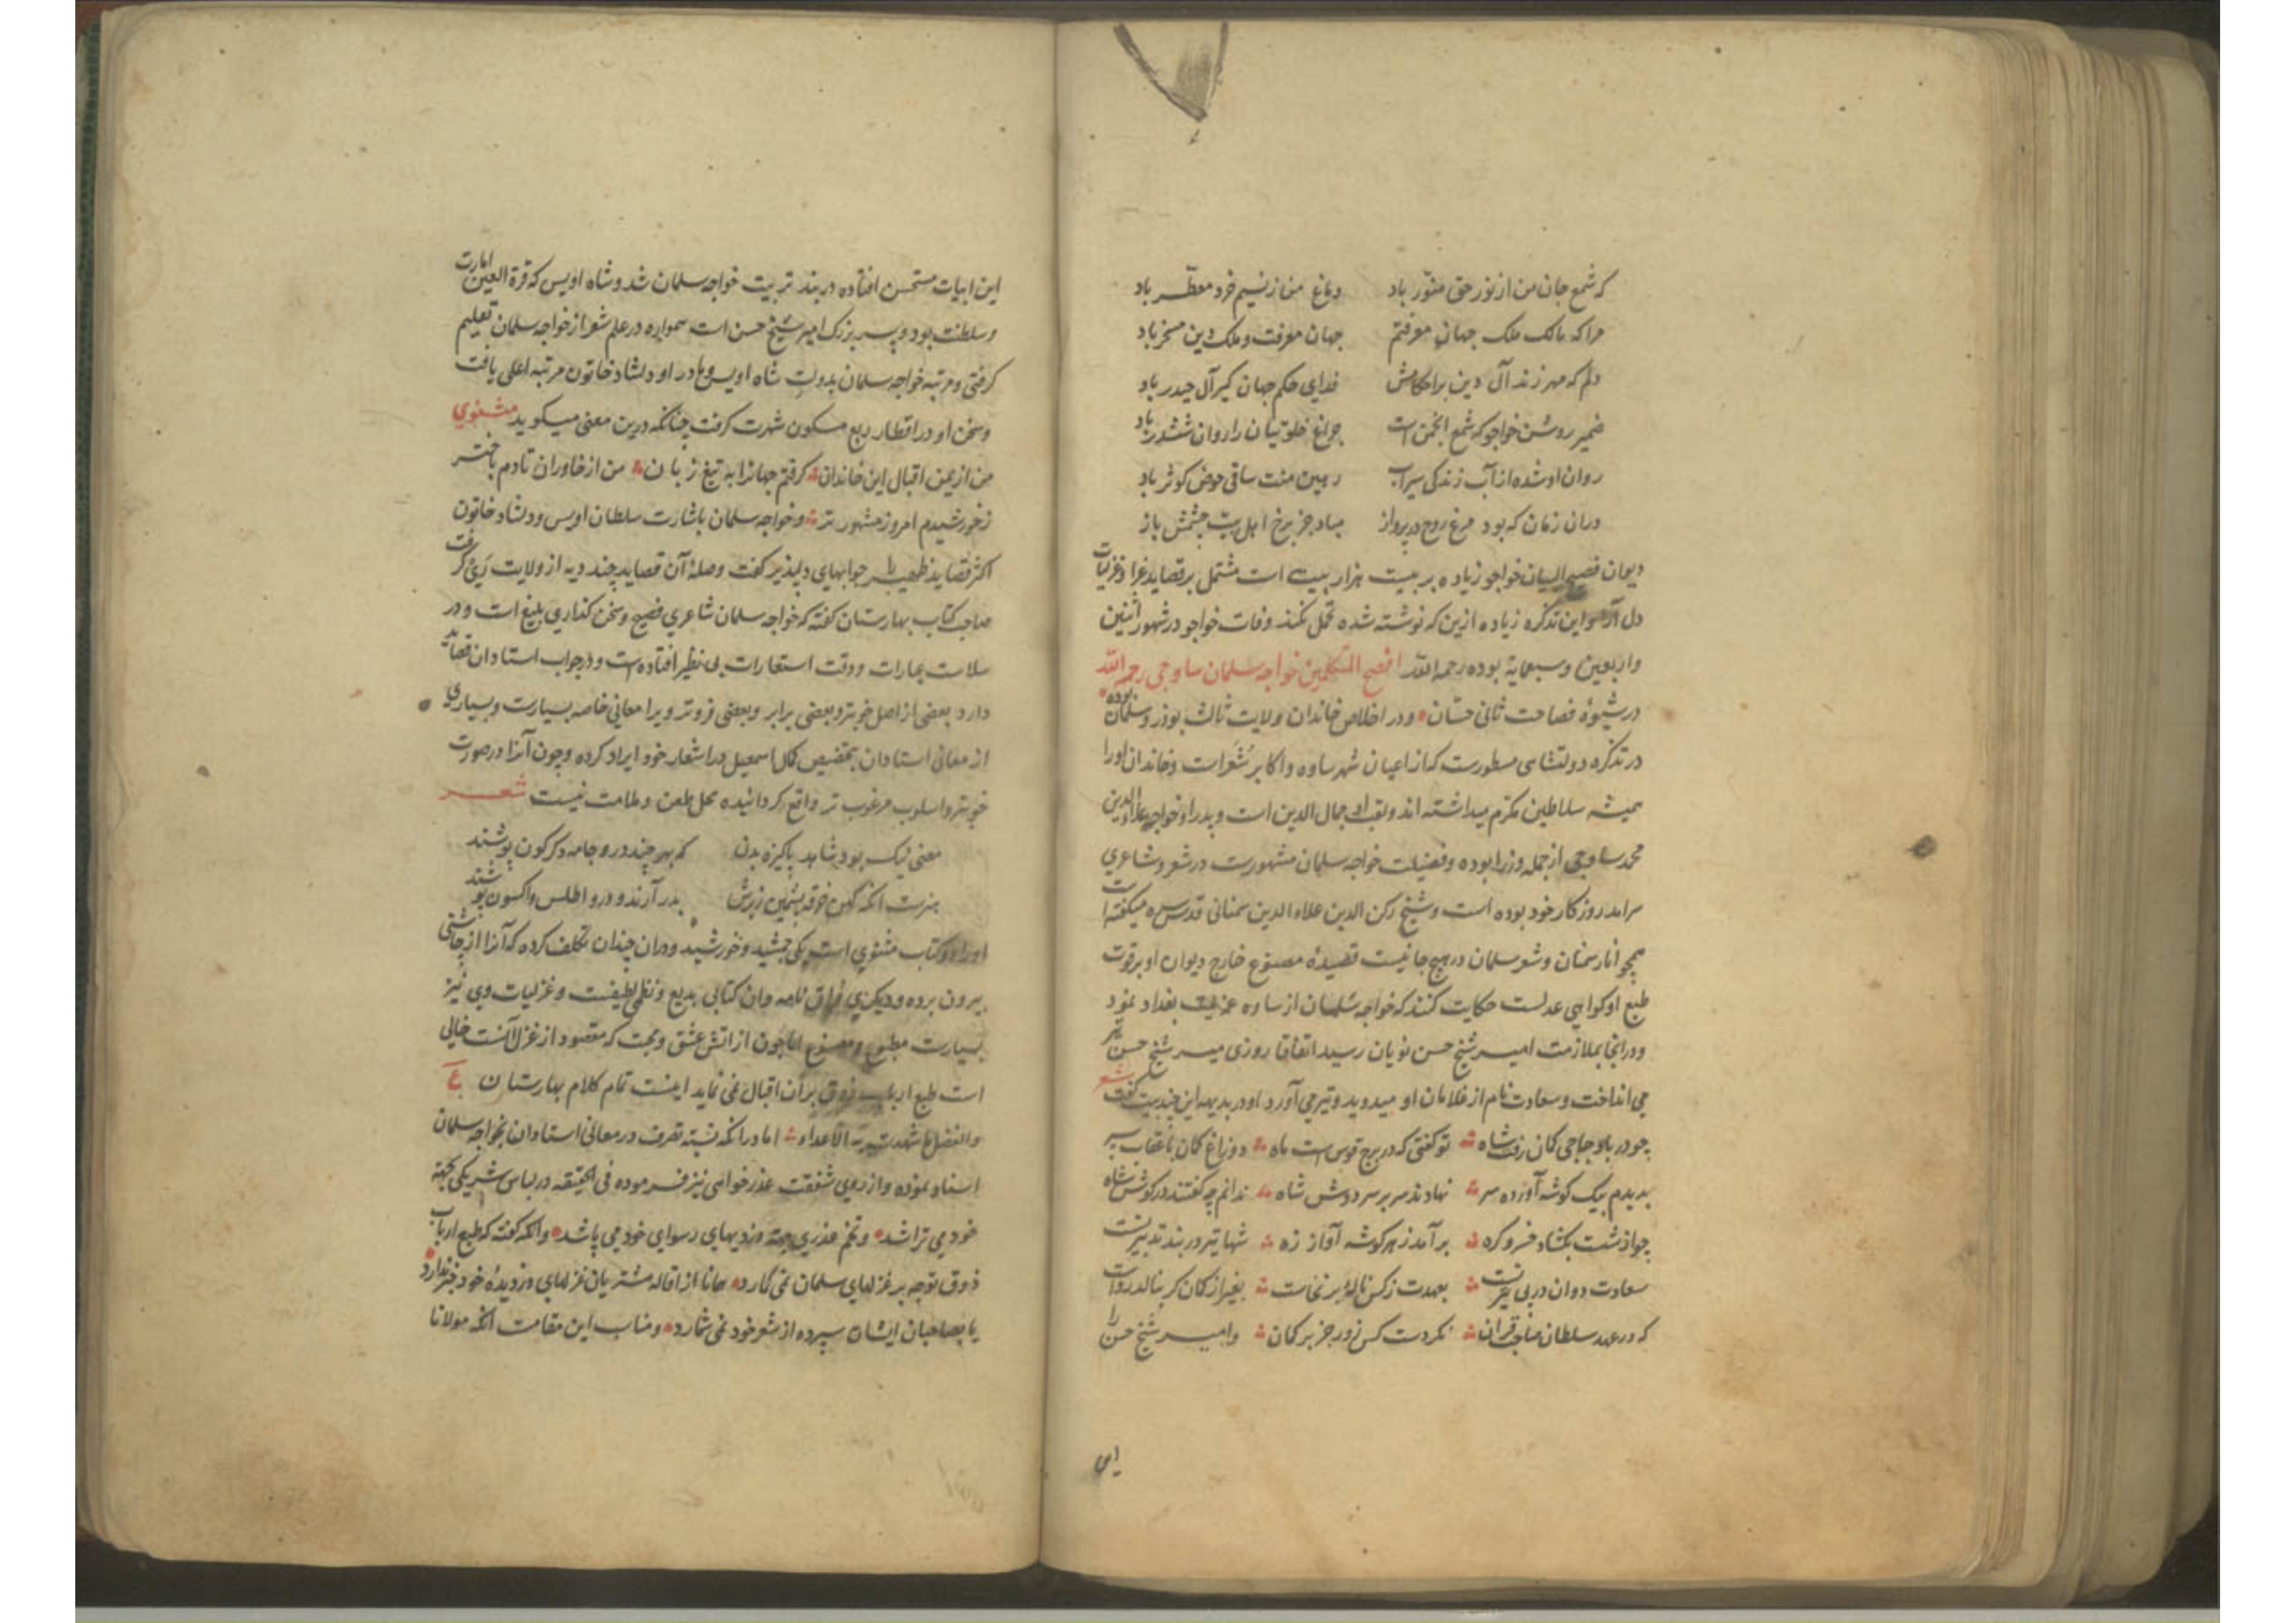 که شمع جان من از نور حق منوّر باد دماغ من ز نسیم خرد معطّر باد
مرا که مالک ملک جهان معرفتم جهان معرفت و ملک دین مسخر باد
دلم که مهر زند آل دین بر احکامش فدای حکم جهان کیر آل حیدر باد
ضمیر روشن خواجو که شمع انجمن است چراغ خلوتیان را روان ششدر باد
روان او شده از آب زندکی سیراب رهین منت ساقی حوض کوثر باد
دران زمان که بود مرغ روح در پرواز مباد جز برخ اهل بیت چشمش باز
دیوان فصیح البیان خواجو زیاده بر بیست هزار بیت است مشتمل بر قصاید غرا و غزلیات
دل آرا و این تذکره زیاده ازین که نوشته شده تحمل نکند وفات خواجو در شهور اثنین
و اربعین و سبعمایة بوده رحمه الله افصح المتکلمین خواجه سلمان ساوجی رحمه الله
در شیوهٔ فصاحت ثانی حسّان و در اخلاص خاندان ولایت ثالث بوذر و سلمان بوده
در تذکره دولتشاهی مسطورست که از اعیان شهر ساوه و اکابر شعراست و خاندان او را
همیشه سلاطین مکرّم میداشته اند و لقب او جمال الدین است و پدر او خواجه علاء الدین
محمد ساوجی از جمله وزرا بوده و فضیلت خواجه سلمان مشهورست در شعر و شاعری
سرامد روزکار خود بوده است و شیخ رکن الدین علاء الدین سمنانی قدس سره میکفته است
همچو انار سمنان و شعر سلمان در هیچ جا نیست قصیدهٔ مصنوع خارج دیوان او بر قوت
طبع او کواهی عدلست حکایت کنند که خواجه سلمان از ساوه عزیمت بغداد نمود
و در انجا بملازمت امیر شیخ حسن نویان رسید اتفاقا روزی میر شیخ حسن تیر
می انداخت و سعادت نام از غلامان او میدوید و تیر می آورد او در بدیهه این چند بیت کفت شعر
چو در بار چاچی کمان رفت شاه تو کفتی که در برج قوس است ماه دو زاغ کمان با عقاب سه پر
بدیدم بیک کوشه آورده سر نهادند سر بر سر دوش شاه ندانم چه کفتند در کوش شاه
چو از شست بکشاد خسرو کره برآمد ز هر کوشه آواز زه شها تیر در بند تدبیر تست
سعادت دوان در پی تیر تست بعهدت ز کس نالهٔ بر نخاست بغیر از کمان کر بنالد رواست
که در عهد سلطان صاحب قران نکردست کس زور جز بر کمان و امیر شیخ حسن را
این
این ابیات مستحسن افتاده در بند تربیت خواجه سلمان شد و شاه اویس که قرة العین امارت
و سلطنت بود و پسر بزرک امیر شیخ حسن است همواره در علم شعر از خواجه سلمان تعلیم
کرفتی و مرتبه خواجه سلمان بدولت شاه اویس و مادر او دلشاد خاتون مرتبه اعلی یافت
و سخن او در اقطار ربع مسکون شهرت کرفت چنانکه درین معنی میکوید مثنوی
من از یمن اقبال این خاندان کرفتم جهانرا به تیغ زبان من از خاوران تا دم باختر
ز خورشیدم امروز مشهورتر و خواجه سلمان باشارت سلطان اویس و دلشاد خاتون
اکثر قصاید ظهیر را جوابهای دلپذیر کفت و صلهٔ آن قصاید چند دیه از ولایت ری کرفت
صاحب کتاب بهارستان کفته که خواجه سلمان شاعری فصیح و سخن کذاری بلیغ است و در
سلاست عبارات و دقت استعارات بی نظیر افتاده است و در جواب استادان قصائد
دارد بعضی از اصل خوبتر و بعضی برابر و بعضی فروتر و ویرا معانی خاصه بسیارست و بسیاری
از معانی استادان بتخصیص کمال اسمعیل در اشعار خود ایراد کرده و چون آنرا در صورت
خوبتر و اسلوب مرغوب تر واقع کردانیده محل طعن و ملامت نیست شعر
معنی نیک بود شاهد پاکیزه بدن که بهر چند درو جامه دکرکون پوشند
هنرست انکه کهن خرقه پشمین ز برش بدر آرند و درو اطلس و اکسون پوشند
او را دو کتاب مثنوی است یکی جمشید و خورشید و دران چندان تکلف کرده که آنرا از چاشنی
بیرون برده و دیکری فراق نامه و ان کتابی بدیع و نظمی لطیفست و غزلیات وی نیز
بسیارست مطبوع و مصنوع اما چون از اتش عشق و محبت که مقصود از غزل آنست خالی
است طبع ارباب ذوق بر آن اقبال نمی نماید اینست تمام کلام بهارستان ع
والفضل ما شهدت به الاعداء اما درانکه نسبه تصرف در معانی استادان بخواجه سلمان
اسناد نموده و از روی شفقت عذر خواهی نیز فرموده فی الحقیقه در لباس شریکی بجهة
خود می تراشد و تخم عذری جهة دزدیهای رسوای خود می پاشد و انکه کفته که طبع ارباب
ذوق توجه بر غزلهای سلمان نمی کارد همانا از اقاله مشتریان غزلهای دزدیدهٔ خود خبر ندارد
یا بصاحبان ایشان سپرده از شعر خود نمی شمارد و مناسب این مقامست انکه مولانا